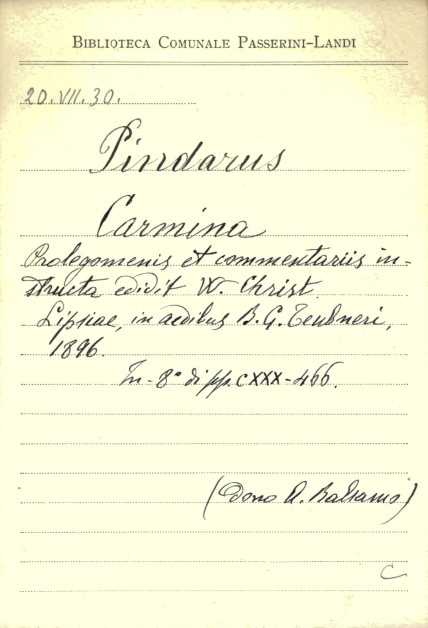 BIBLIOTECA COMUNALE PASSERINI-LANDI
20.VII.30.
Pindarus
Carmina
Prolegomenis et commentariis in-
structa edidit W. Christ.
Lipsiae, in aedibus B. G. Teubneri,
1896.
In-8° di pp. CXXX-466.
(Dono A. Balsamo)
C